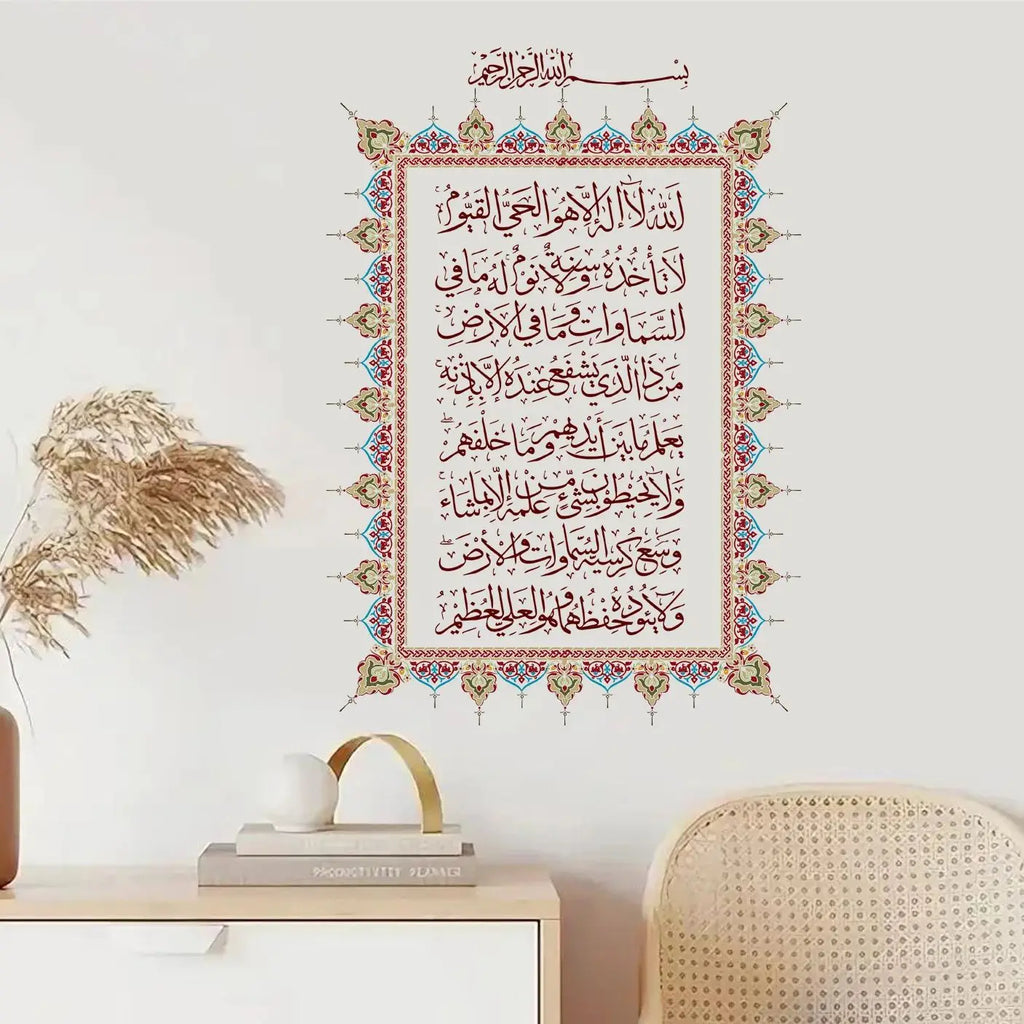 بِسْمِ اللهِ الرَّحْمٰنِ الرَّحِيْمِ
اَللهُ لَآ اِلٰهَ اِلَّا هُوَ الْحَيُّ الْقَيُّوْمُ
لَا تَأْخُذُهُ سِنَةٌ وَلَا نَوْمٌ لَهُ مَا فِي
السَّمَاوَاتِ وَمَا فِي الْاَرْضِ
مَنْ ذَا الَّذِي يَشْفَعُ عِنْدَهُ اِلَّا بِاِذْنِهِ
يَعْلَمُ مَا بَيْنَ أَيْدِيْهِمْ وَمَا خَلْفَهُمْ
وَلَا يُحِيْطُوْنَ بِشَيْءٍ مِّنْ عِلْمِهِ اِلَّا بِمَا شَاءَ
وَسِعَ كُرْسِيُّهُ السَّمَاوَاتِ وَالْأَرْضَ
وَلَا يَئُوْدُهُ حِفْظُهُمَا وَهُوَ الْعَلِيُّ الْعَظِيْمُ
PRODUCTIVITY PLANNER